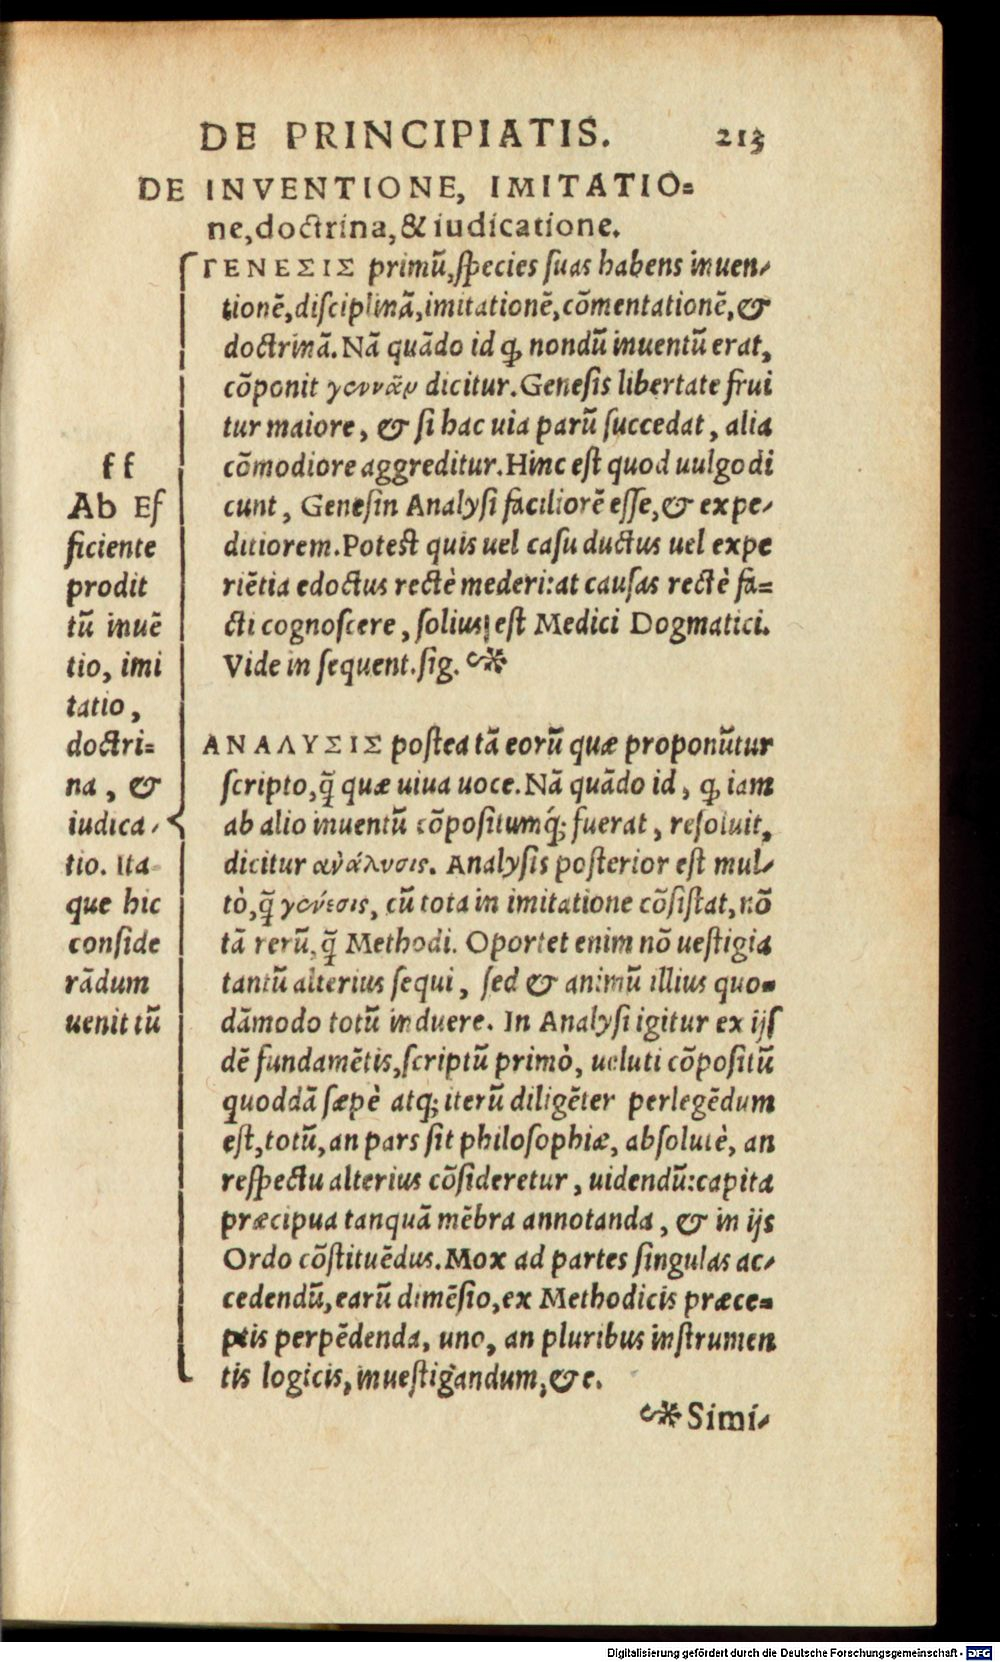 DE PRINCIPIATIS. 213
DE INVENTIONE, IMITATIO=
ne, doctrina, & iudicatione.
ff
Ab Ef
ficiente
prodit
tũ inuẽ
tio, imi
tatio,
doctri=
na, &
iudica-
tio. Ita
que hic
conside
rãdum
uenit tũ
ΓΕΝΕΣΙΣ primũ, species suas habens inuen-
tionẽ, disciplinã, imitationẽ, cõmentationẽ, &
doctrinã. Nã quãdo id ꝙ nondũ inuentũ erat,
cõponit γεννᾶν dicitur. Genesis libertate frui
tur maiore, & si hac uia parũ succedat, alia
cõmodiore aggreditur. Hinc est quod uulgo di
cunt, Genesin Analysi faciliorẽ esse, & expe-
ditiorem. Potest quis uel casu ductus uel expe
riẽtia edoctus rectè mederi: at causas rectè fa=
cti cognoscere, solius est Medici Dogmatici.
Vide in sequent. sig. ☙*
ΑΝΑΛΥΣΙΣ postea tã eorũ quæ proponũtur
scripto, q̃ quæ uiua uoce. Nã quãdo id, ꝙ iam
ab alio inuentũ cõpositumq́; fuerat, resoluit,
dicitur ἀνάλυσις. Analysis posterior est mul-
tò, q̃ γένεσις, cũ tota in imitatione cõsistat, nõ
tã rerũ, q̃ Methodi. Oportet enim nõ uestigia
tantũ alterius sequi, sed & animũ illius quo=
dãmodo totũ induere. In Analysi igitur ex ijs
dẽ fundamẽtis, scriptũ primò, ueluti cõpositũ
quoddã sæpè atq; iterũ diligẽter perlegẽdum
est, totũ, an pars sit philosophiæ, absolutè, an
respectu alterius cõsideretur, uidendũ: capita
præcipua tanquã mẽbra annotanda, & in ijs
Ordo cõstituẽdus. Mox ad partes singulas ac-
cedendũ, earũ dimẽsio, ex Methodicis præce=
ptis perpẽdenda, uno, an pluribus instrumen
tis logicis, inuestigandum, &c.
☙* Simi-
Digitalisierung gefördert durch die Deutsche Forschungsgemeinschaft - DFG